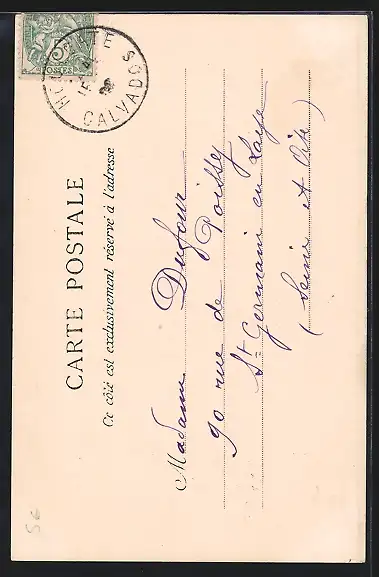 CARTE POSTALE
Ce côté est exclusivement réservé à l'adresse
Madame Dufour
90 rue de Poissy
St Germain en Laye
(Seine et Oise)
CALVADOS
POSTES
56